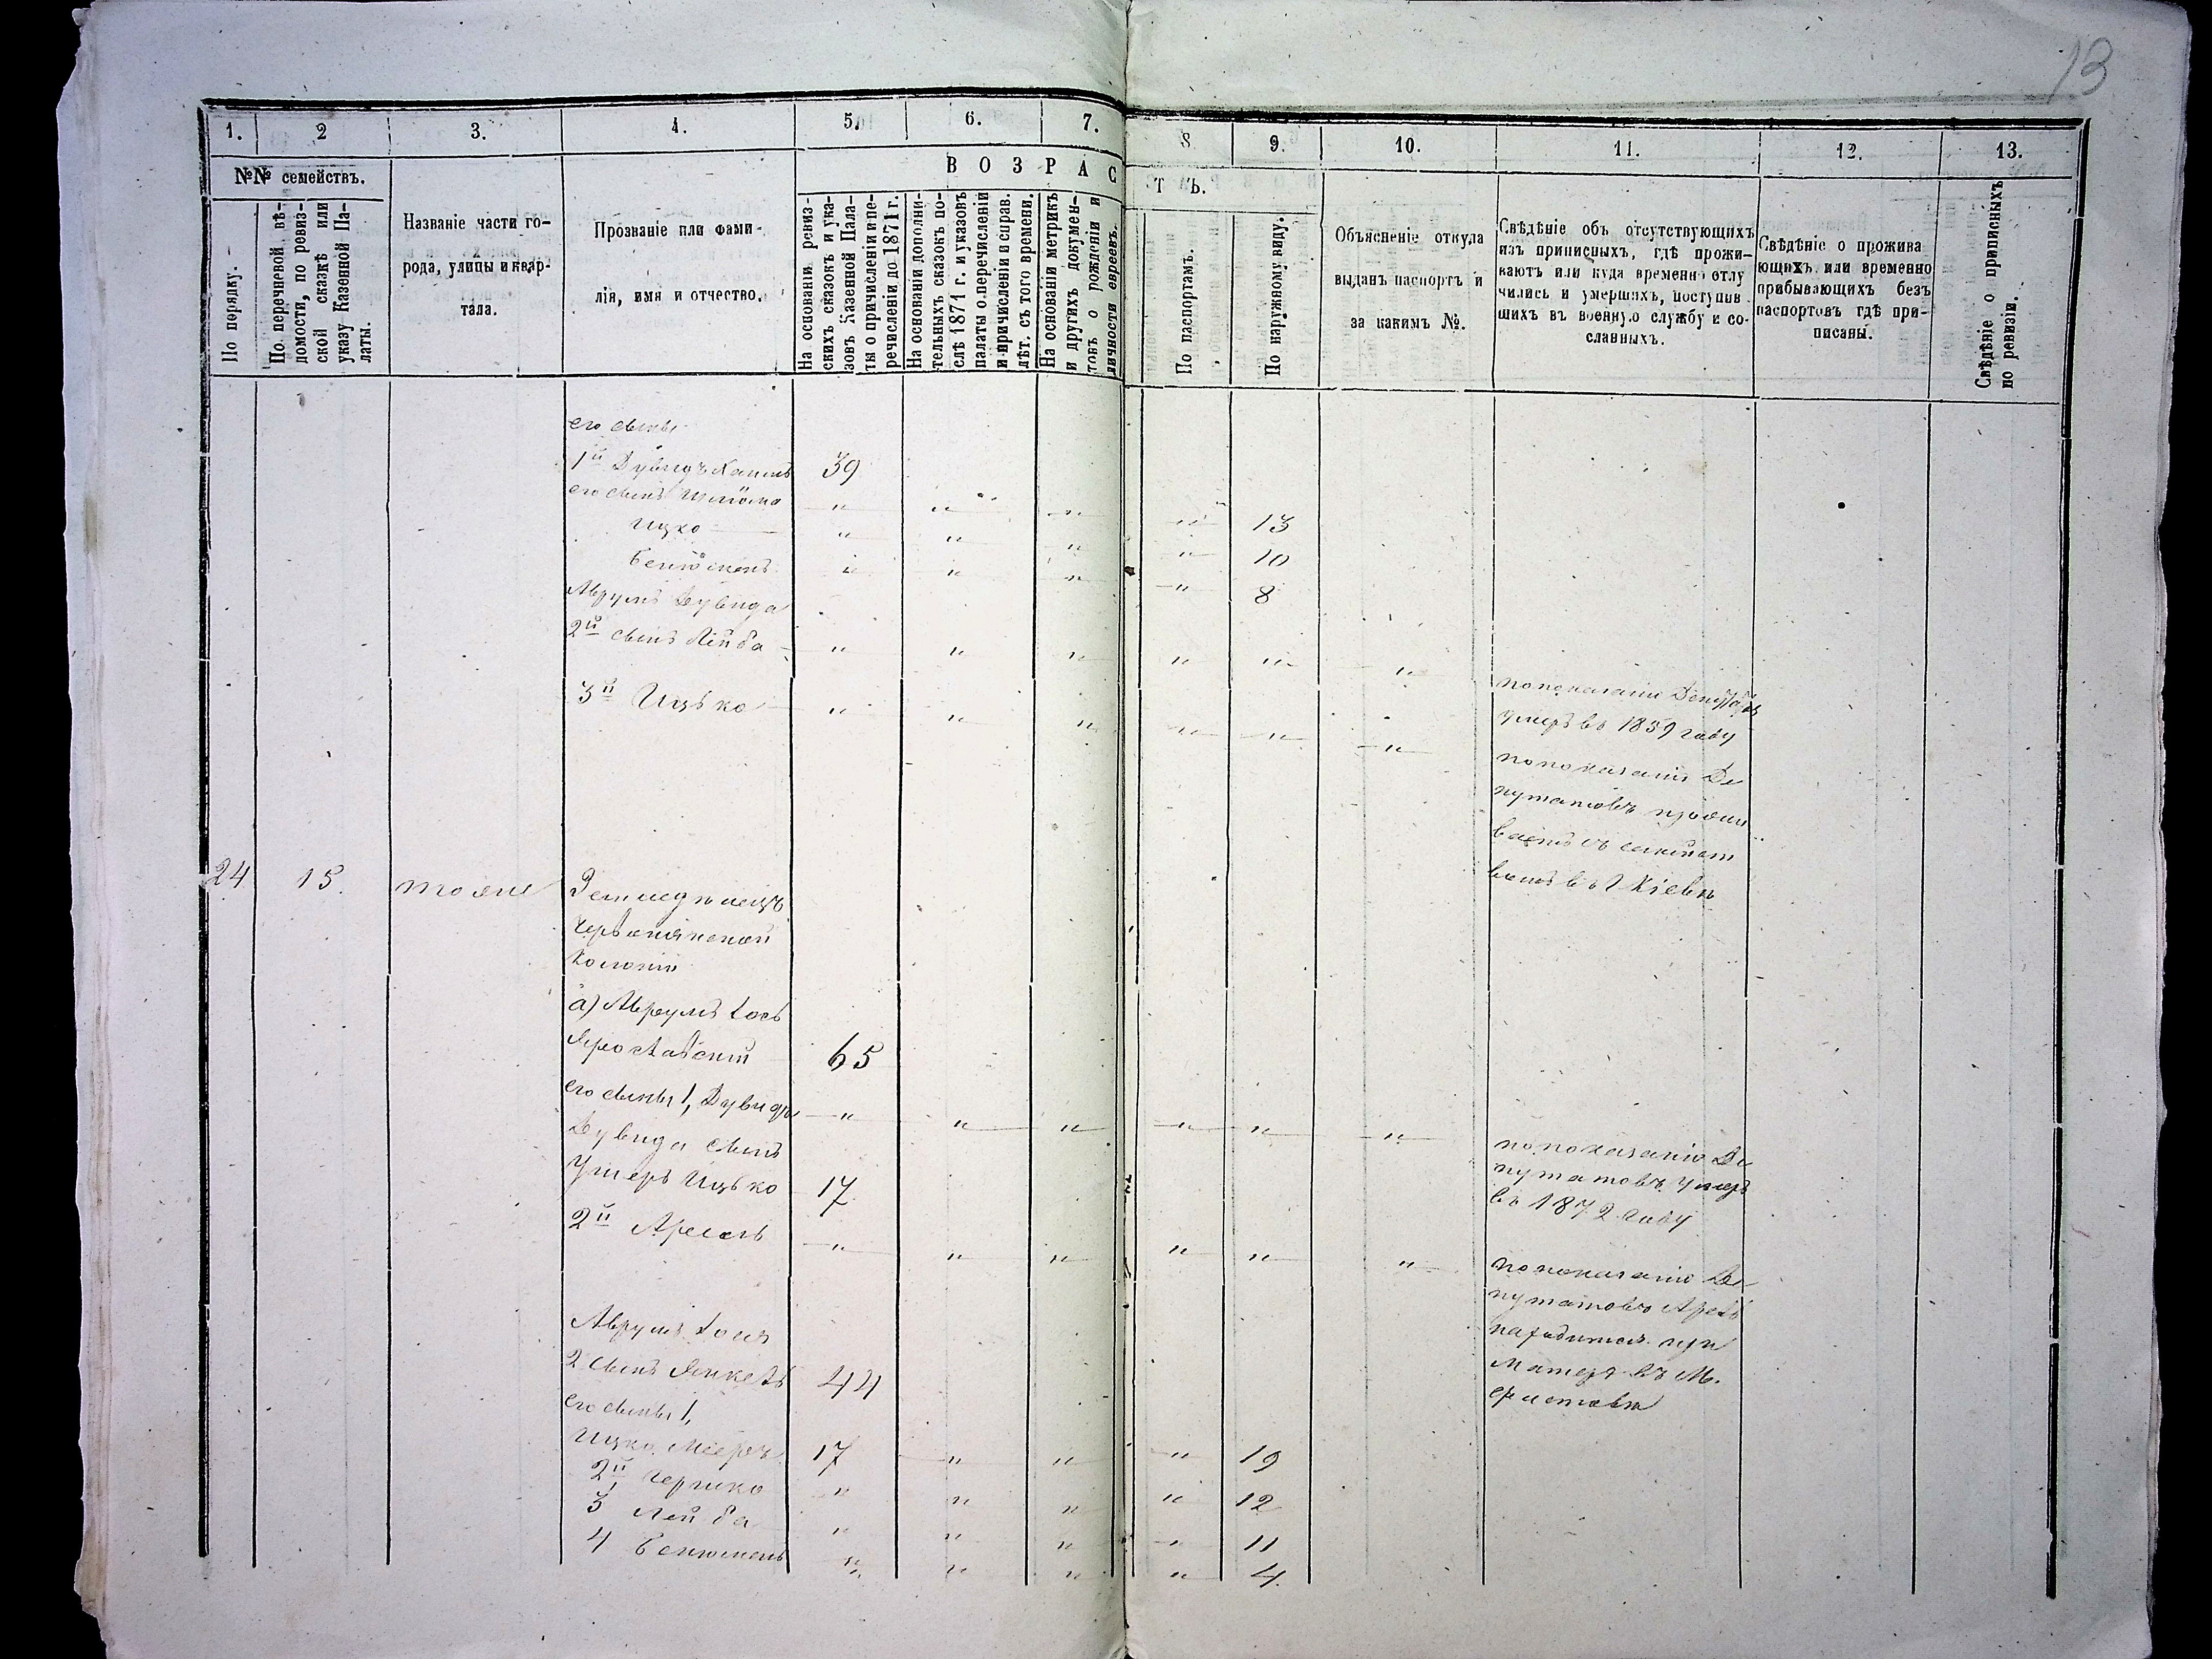 13
1.
2
3.
4.
5.
6.
7.
8
9.
10.
11.
12.
13.
№№ семействъ.
ВОЗРАСТЪ.
По порядку.
По перечневой вѣ-
домости, по ревиз-
ской сказкѣ или
указу Казенной Па-
латы.
Названіе части го-
рода, улицы и квар-
тала.
Прозваніе или фами-
лія, имя и отчество.
На основаніи ревиз-
скихъ сказокъ и ука-
зовъ Казенной Пала-
ты о причисленіи и пе-
речисленіи до 1871 г.
На основаніи дополни-
тельныхъ сказокъ по-
слѣ 1871 г. и указовъ
палаты о перечисленіи
и причисленіи и справ.
лѣт. съ того времени.
На основаніи метрикъ
и другихъ докумен-
товъ о рожденіи и
личности евреевъ.
По паспортамъ.
По наружному виду.
Объясненіе откуда
выданъ паспортъ и
за какимъ №.
Свѣдѣніе объ отсутствующихъ
изъ приписныхъ, гдѣ прожи-
ваютъ или куда временно отлу
чились и умершихъ, поступив
шихъ въ военную службу и со-
сланныхъ.
Свѣдѣніе о прожива
ющихъ или временно
прибывающихъ безъ
паспортовъ гдѣ при-
писаны.
Свѣдѣніе о приписныхъ
по ревизіи.
его сыны
1й Дувидъ 39
его сынъ Шлёма " " " " 13
Ицко " " " " 10
Бенюмень " " " " 8
Аврумъ Дувида
2й сынъ Лейба " " " " " "
по показанію Депутатовъ
умеръ въ 1859 году
3й Ицько " " " " " "
по показанію Де
путатовъ прожи
ваетъ съ семейст
вомъ въ г Кіевѣ
24 15. тоже
Земледѣлецъ
Колоніи
а) Аврумъ Іось
Ярославскій 65
его сыны 1, Дувидъ " " " " " "
по показанію Де
путатовъ умеръ
въ 1872 году
Дувида сынъ
Ушеръ Ицько 17
2й Арель " " " " " "
по показанію Де
путатовъ Арель
находится при
матери въ М.
Аврумъ Іося
2 сынъ Янкель 44
его сыны 1,
Ицко Мееръ 17 " " " 19
2й Гершко " " " " 12
3 Лейба " " " " 11
4 Бенюмень " " " " 4.